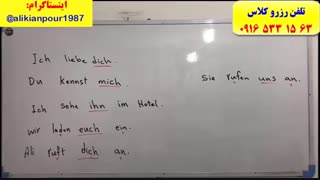 اینستاگرام:
@alikianpour1987
تلفن رزرو کلاس
۰۹۱۶ ۵۳۳ ۱۵ ۶۳
Ich liebe dich.
Du kennst mich.
Ich sehe ihn im Hotel.
wir laden euch ein.
Ali ruft dich an.
Sie rufen uns an.